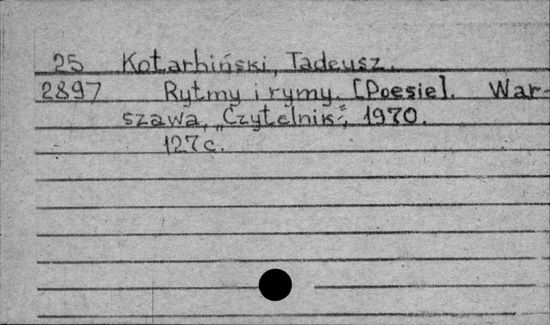 25 Kotarbiński, Tadeusz.
2897 Rytmy i rymy. [Poesie]. War-
szawa, „Czytelnik“, 1970.
127 c.